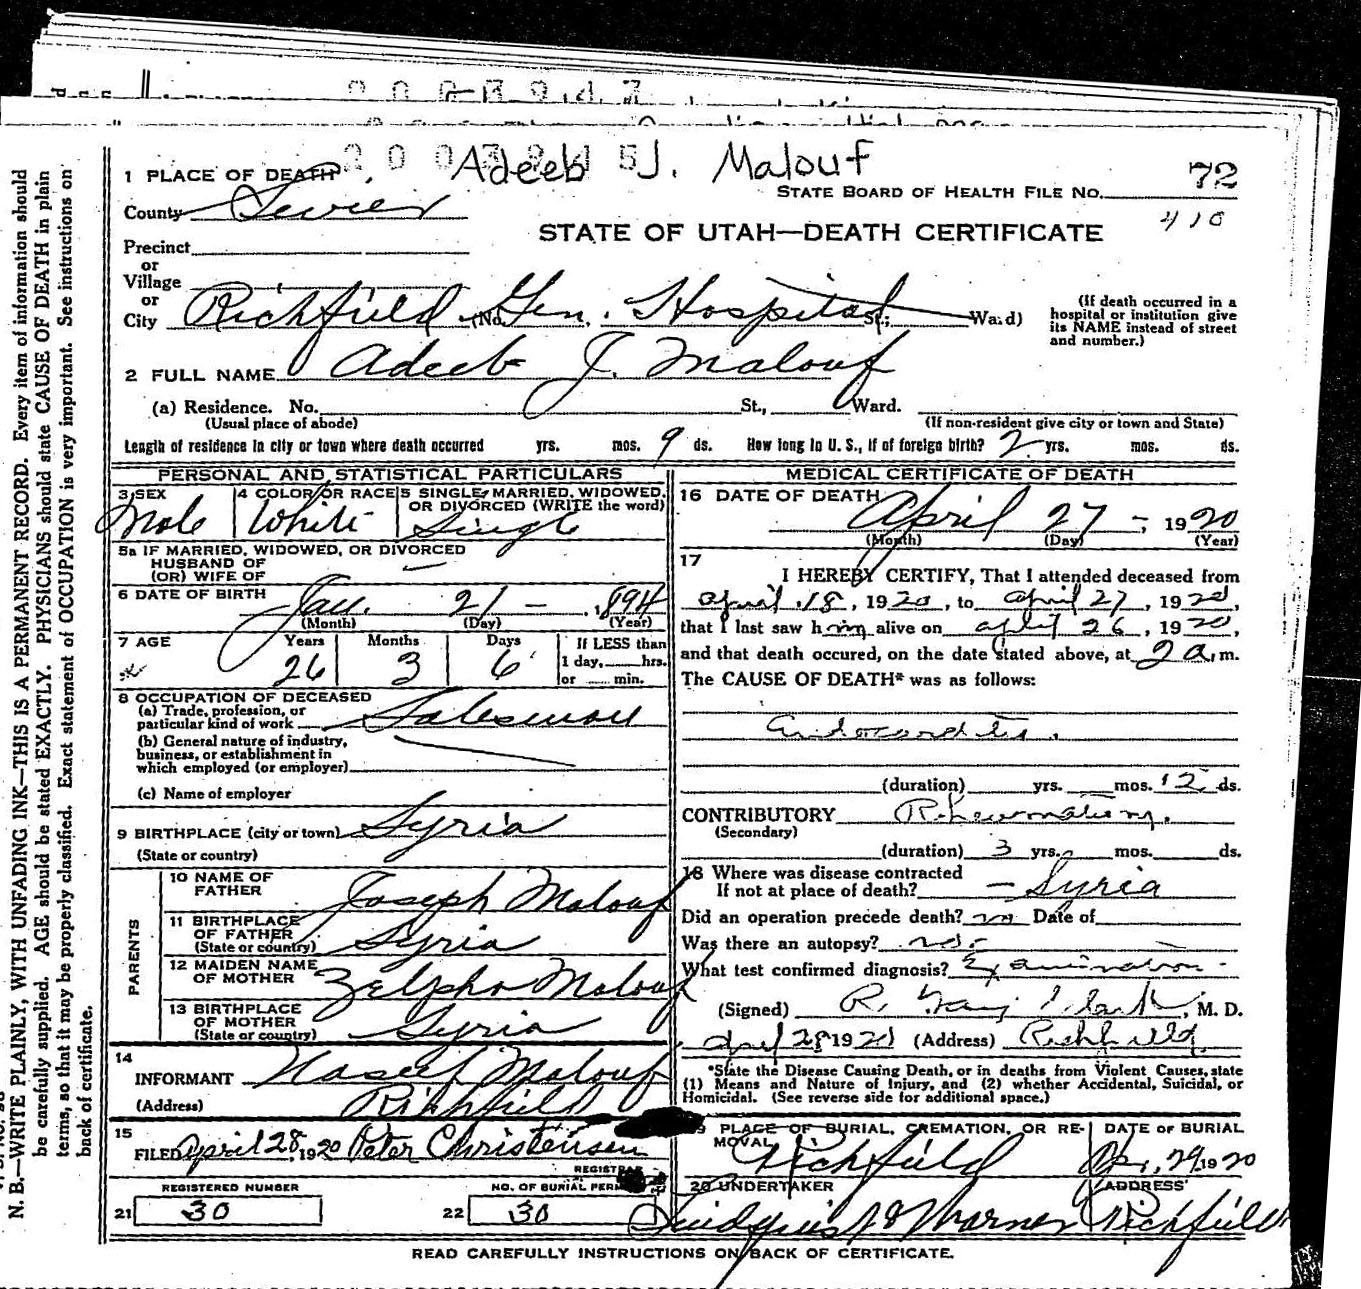 Adeeb J. Malouf
1 PLACE OF DEATH
STATE BOARD OF HEALTH FILE No. 72
County Sevier
410
STATE OF UTAH—DEATH CERTIFICATE
Precinct
or
Village
or
City Richfield (No. Gen. Hospital St.; Ward)
(If death occurred in a hospital or institution give its NAME instead of street and number.)
2 FULL NAME Adeeb J. Malouf
(a) Residence. No. St., Ward.
(Usual place of abode) (If non-resident give city or town and State)
Length of residence in city or town where death occurred yrs. mos. 9 ds. How long in U. S., if of foreign birth? 2 yrs. mos. ds.
PERSONAL AND STATISTICAL PARTICULARS
3 SEX Male
4 COLOR OR RACE White
5 SINGLE, MARRIED, WIDOWED, OR DIVORCED (WRITE the word) Single
5a IF MARRIED, WIDOWED, OR DIVORCED
HUSBAND OF
(OR) WIFE OF
6 DATE OF BIRTH Jan. 21 - , 1894
(Month) (Day) (Year)
7 AGE Years Months Days If LESS than
26 3 6 1 day, hrs.
or min.
8 OCCUPATION OF DECEASED
(a) Trade, profession, or
particular kind of work Salesman
(b) General nature of industry,
business, or establishment in
which employed (or employer)
(c) Name of employer
9 BIRTHPLACE (city or town) Syria
(State or country)
PARENTS
10 NAME OF FATHER Joseph Malouf
11 BIRTHPLACE OF FATHER Syria
(State or country)
12 MAIDEN NAME OF MOTHER Zelpha Malouf
13 BIRTHPLACE OF MOTHER Syria
(State or country)
14
INFORMANT Naseef Malouf
(Address) Richfield
15
FILED April 28, 1920 Peter Christensen
REGISTRAR
REGISTERED NUMBER
21 30
NO. OF BURIAL PERMIT
22 30
MEDICAL CERTIFICATE OF DEATH
16 DATE OF DEATH
April 27 - , 1920
(Month) (Day) (Year)
17
I HEREBY CERTIFY, That I attended deceased from
april 18, 1920, to april 27, 1920,
that I last saw him alive on april 26, 1920,
and that death occured, on the date stated above, at 2 a.m.
The CAUSE OF DEATH* was as follows:
Endocarditis.
(duration) yrs. mos. 12 ds.
CONTRIBUTORY Rheumatism.
(Secondary)
(duration) 3 yrs. mos. ds.
18 Where was disease contracted
If not at place of death? - Syria
Did an operation precede death? no Date of
Was there an autopsy? no-
What test confirmed diagnosis? Examination-
(Signed) R. Clark, M. D.
April 28 1920 (Address) Richfield.
*State the Disease Causing Death, or in deaths from Violent Causes, state
(1) Means and Nature of Injury, and (2) whether Accidental, Suicidal, or
Homicidal. (See reverse side for additional space.)
19 PLACE OF BURIAL, CREMATION, OR REMOVAL Richfield
DATE OF BURIAL Apr. 29, 1920
20 UNDERTAKER & Warner
ADDRESS Richfield
READ CAREFULLY INSTRUCTIONS ON BACK OF CERTIFICATE.
N. B.—WRITE PLAINLY, WITH UNFADING INK—THIS IS A PERMANENT RECORD. Every item of information should
be carefully supplied. AGE should be stated EXACTLY. PHYSICIANS should state CAUSE OF DEATH in plain
terms, so that it may be properly classified. Exact statement of OCCUPATION is very important. See instructions on
back of certificate.